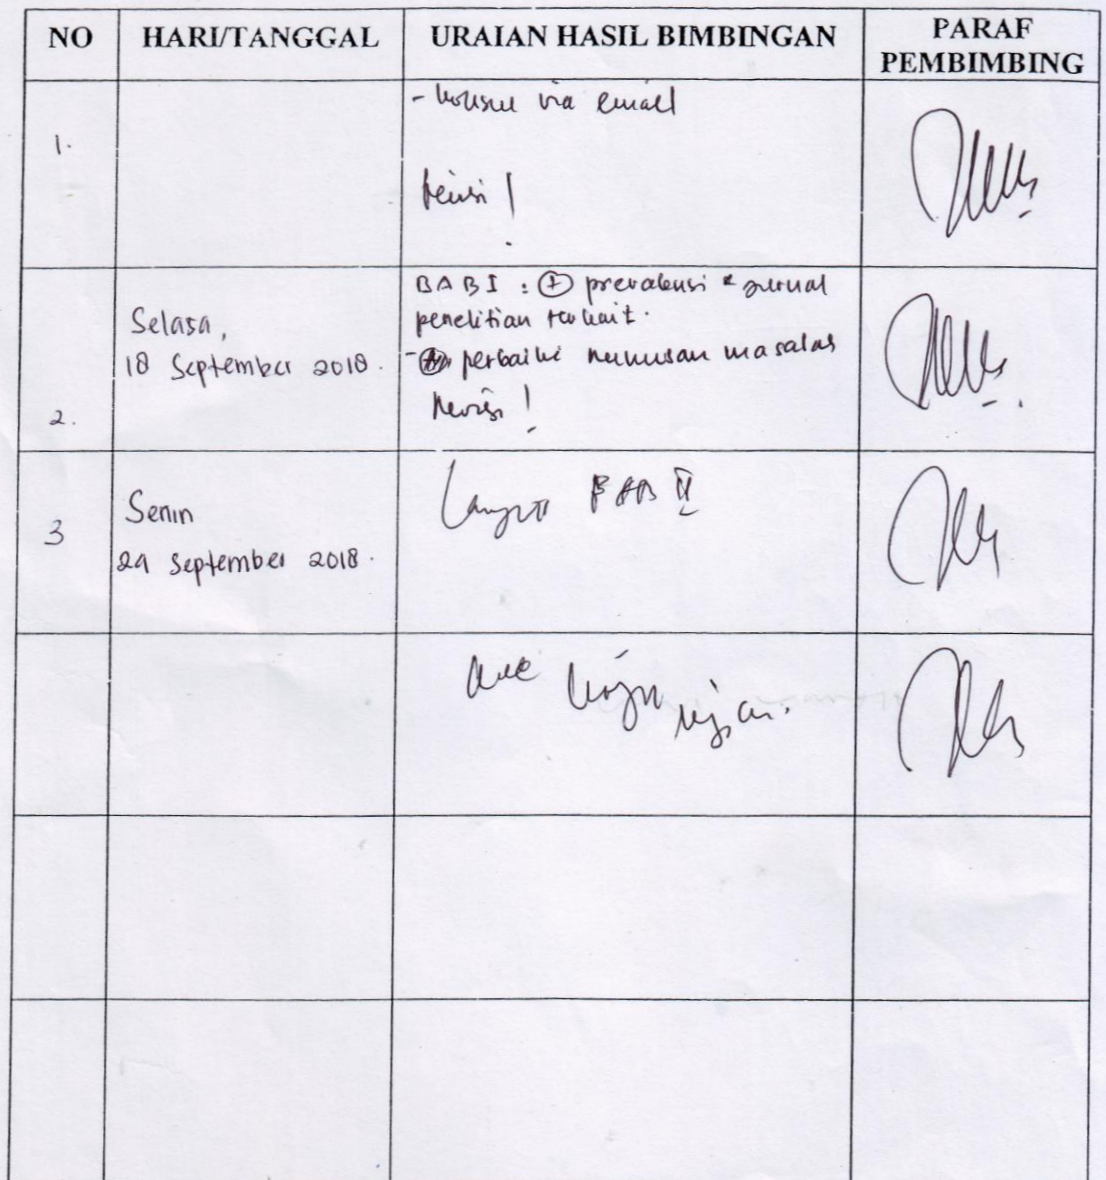 NO HARI/TANGGAL URAIAN HASIL BIMBINGAN PARAF PEMBIMBING
1.
- via email
!
2.
Selasa,
18 September 2018.
BAB I : + prevalensi & jurnal
penelitian terkait.
perbaiki rumusan masalah
Revisi !
3
Senin
24 September 2018.
Lanjut BAB II